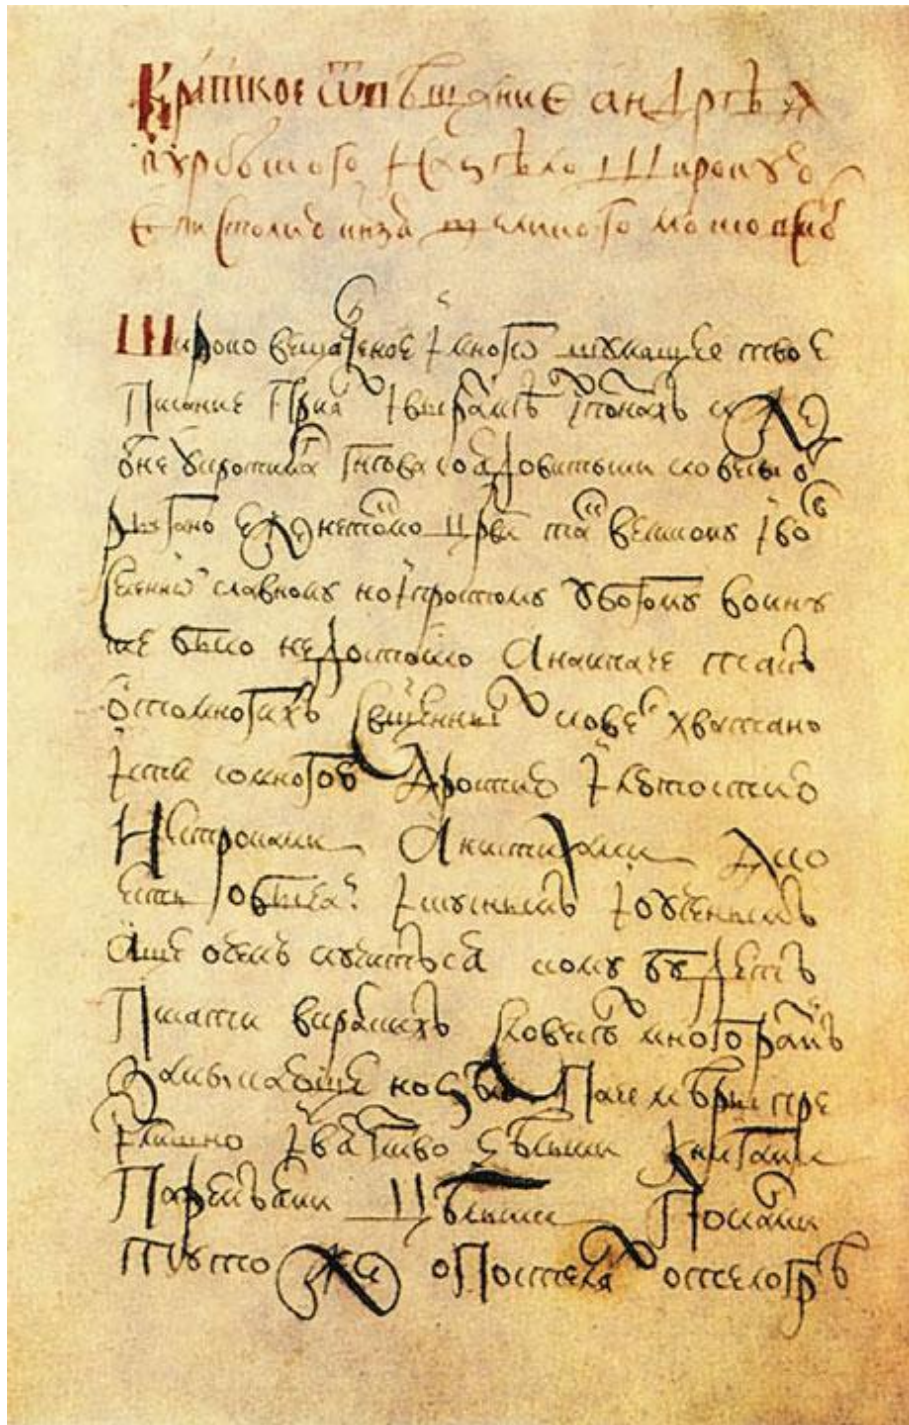 Краткое ѿвѣщание андрѣя
курбского на зѣло широкую
епистолию кнзя великого московского
Широковещателное і многошумящее твое
писание приях і выразумѣх і познахъ иже
от неукротимаго гнѣва со ядовитыми словесы от
рыгано еже не токмо цреви так великому і во
вселенней славному но і простому убогому воину
не было достойно а наипаче такъ
от многихъ священных словес хватано
і те со многою яростию і лютостию
ни строками а ни стихами яко
есть обычай іскуснымъ і ученымъ
аще о чемъ случится кому будетъ
писати в кратких словесех многъ разумъ
замыкающе но зѣло паче мѣры пре
излишно і звягливо цѣлыми книгами
паремьями цѣлыми посланми
туто же о постелях о телогрѣ